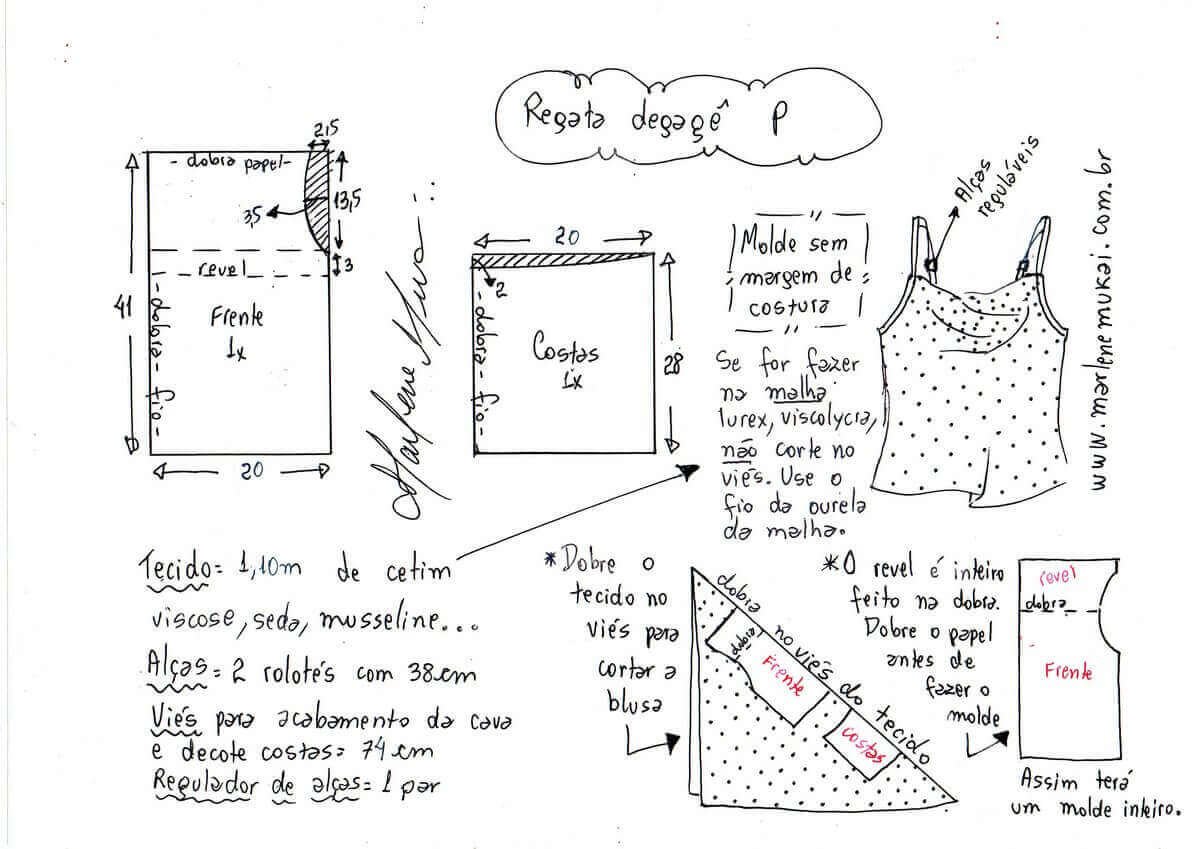 Regata degagê P
2,5
- dobra papel -
13,5
3,5
revel
3
41
Frente
1x
- dobra - fio -
20
20
2
- dobra - fio -
Costas
1x
28
Molde sem
margem de
costura
Se for fazer
na malha
lurex, viscolycra,
não corte no
viés. Use o
fio da ourela
da malha.
Alças
reguláveis
www.marlenemukai.com.br
Tecido= 1,10m de cetim
viscose, seda, musseline...
Alças= 2 rolotés com 38cm
Viés para acabamento da cava
e decote costas= 74 cm
Regulador de alças= 1 par
*Dobre o
tecido no
viés para
cortar a
blusa
dobra no viés do tecido
dobra
Frente
costas
*O revel é inteiro
feito na dobra.
Dobre o papel
antes de
fazer o
molde
revel
dobra
Frente
Assim terá
um molde inteiro.